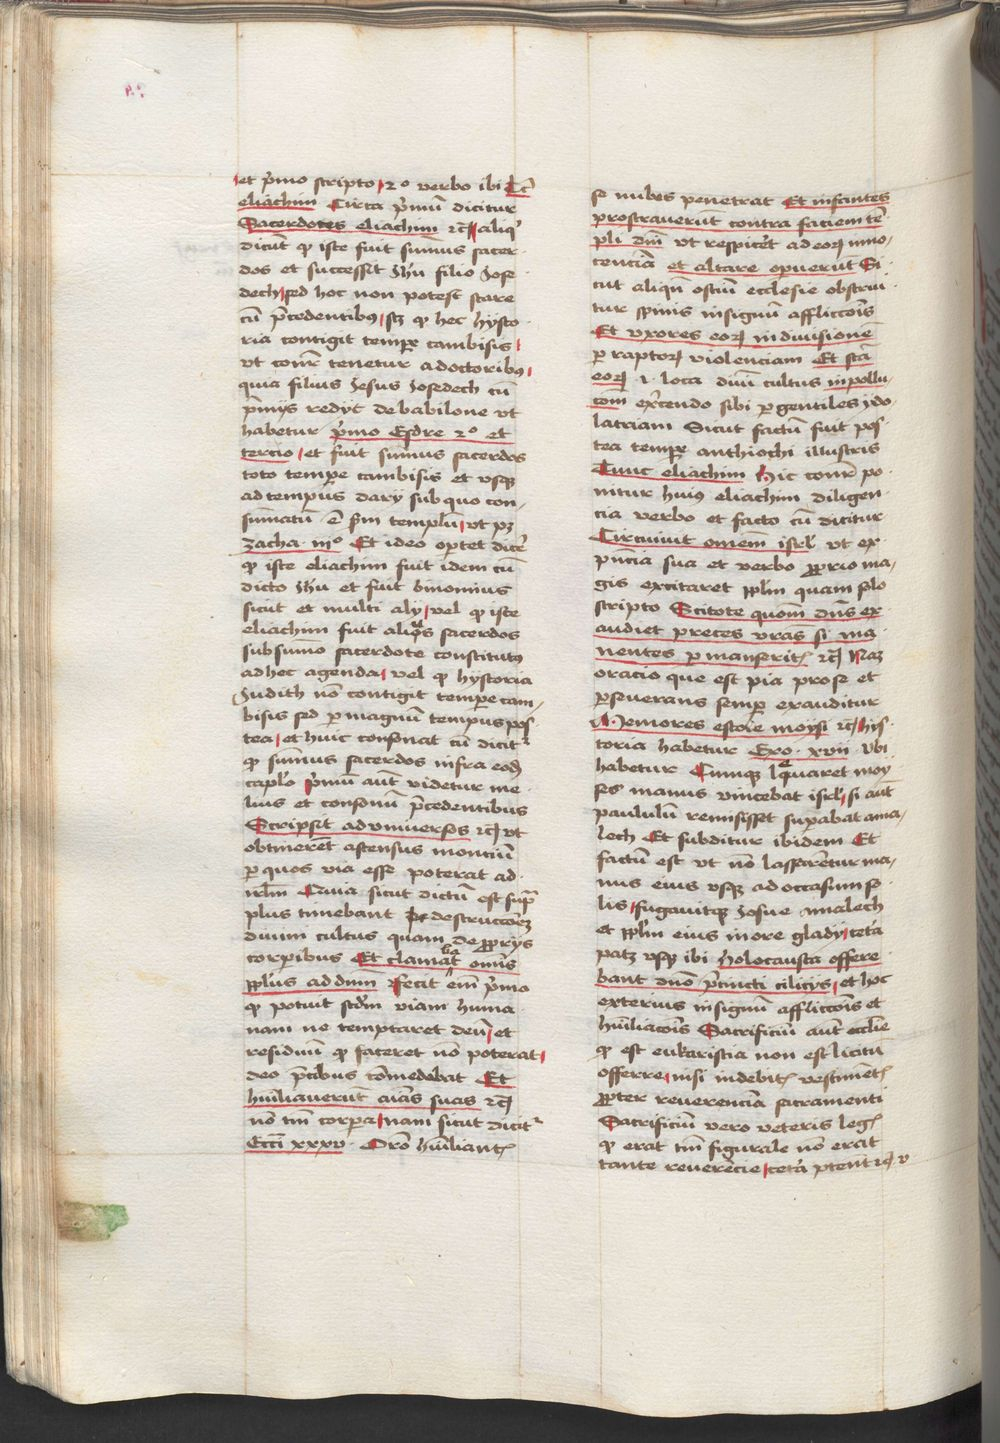 et p̄mo scripto 2º verbo ibi Tc̄
eliachim Circa p̄mū dicitur
Sacerdotes eliachim ⁊c̄ aliqͥ
dicūt ꝙ iste fuit sūmus sacer
dos et successit Jh̄u filio Jose
dech sed hoc non potest stare
cū p̄cedentibꝰ sꝫ ꝙ hec hysto
ria contigit tempe cambisis
vt cōmr̄ tenetur a doctoribꝰ
quia filius Jesus Josedech cū
p̄mys redyt de babilone vt
habetur p̄mo Esdre 2º et
tercio et fuit sūmus sacerdos
toto tempe cambisis et vsqꝫ
ad tempus dary sub quo con
sūmatū ē sm̄ templū vt pꝫ
Zacha iiiº Et ideo optet dicē
ꝙ iste eliachim fuit idem cū
dicto Jh̄u et fuit binomius
sicut et multi aly vel ꝙ iste
eliachim fuit aliqͥs sacerdos
sub sūmo sacerdote constitutꝰ
ad hec agenda vel ꝙ hystoria
Judith nō contigit tempe cam
bisis sed ꝑ magnū tempus pos
tea et huic consonat cū dicitͬ
ꝙ sūmus sacerdos infra eodꝫ
caplo p̄mū aūt videtur me
lius et consonū p̄cedentibus
Scripsit ad vniuersos ⁊c̄ vt
obtinerēt ascensus moncium
ꝑ quos via esse poterat ad
irlm̄ Quia sicut dictū est supͣ
plus timebant de destructōe
diuini cultus quam de ꝓprys
corpibus Et clamaͧt omīs
ppl̄us ad dnm̄ fecit em̄ p̄mo
ꝙ potuit scd̄m viam huma
nam ne temptaret deū et
residuū ꝙ facere nō poterat
deo p̄cibus cōmedebat Et
hūiliauerūt aīas suas ⁊c̄
nō tm̄ corpa nam sicut dicitͬ
Ecci xxxv Orō hūiliantꝭ
se nubes penetrat Et infantes
prostrauerūt contra faciem tē
pli dnī vt respicēt ad eoꝝ inno
cenciā et altare opuerūt Si
cut aliqn̄ ostiū ecclesie obstrui
tur spinis in signū afflicōis
Et vxores eoꝝ in diuisionē
ꝑ raptoꝝ violenciam Et scā
eoꝝ .i. loca diuī cultus in pollu
cōm exc̄endo sibi ꝑ gentiles ydo
latriam Sicut factū fuit pos
tea tempe anthiochi illustris
Tunc eliachim Hic cōmr̄ po
nitur huiꝰ eliachim diligen
cia verbo et facto cū dicitur
Circuiuit omēm isrl̄ vt ex
pn̄cia sua et verbo ꝓprio ma
gis excitaret pplm̄ quam solo
scripto Scitote quom̄ dn̄s ex
audiet preces vrās si ma
nentes ꝑmanseritꝭ ⁊c̄ Naꝫ
oracio que est pia prose et
ꝑseuerans semꝑ exauditur
Memores estote moysi ⁊c̄ hys
toria habetur Exo. xvii vbi
habetur Cumqꝫ leuaret moy
ses manus vincebat isrl̄ si aūt
paululū remisisset supabat ama
lech Et subditur ibidem Et
factū est vt nō lassarētur ma
nus eius vsqꝫ ad occasum so
lis fugauitqꝫ Josue amalech
et pplm̄ eius in ore glady cetā
patꝫ vsqꝫ ibi holocausta offere
bant dn̄o p̄cincti cilicys et hoc
exterius in signū afflictōis et
hūiliacōis Sacrificiū aūt eccl̄ie
ꝙ est eukaristia non est licitū
offerre nisi in debitꝭ vestimētꝭ
ꝓpter reuerenciā sacramenti
Sacrificiū vero veteris legꝭ
ꝙ erat tm̄ figurale nō erat
tante reuerēcie cetā ptent